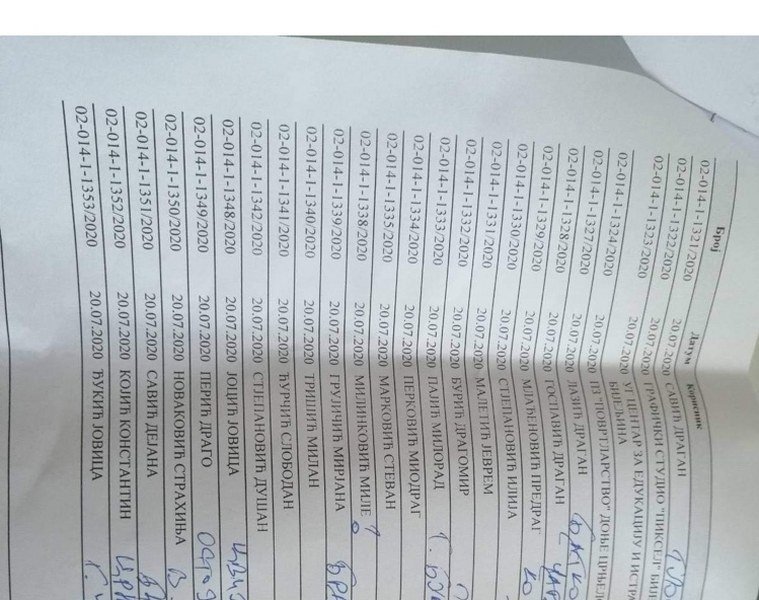 Број Датум Корисник
02-014-1-1321/2020 20.07.2020 САВИЋ ДРАГАН
02-014-1-1322/2020 20.07.2020 ГРАФИЧКИ СТУДИО "ПИКСЕЛ" БИЈЕ
02-014-1-1323/2020 20.07.2020 УГ ЦЕНТАР ЗА ЕДУКАЦИЈУ И ИСТРА
БИЈЕЉИНА
02-014-1-1324/2020 20.07.2020 ПЗ "ПОВРТЛАРСТВО" ДОЊЕ ЦРЊЕЛ
02-014-1-1327/2020 20.07.2020 ЛАЗИЋ ДРАГАН
02-014-1-1328/2020 20.07.2020 ГОСПАВИЋ ДРАГАН
02-014-1-1329/2020 20.07.2020 МЛАЂЕНОВИЋ ПРЕДРАГ
02-014-1-1330/2020 20.07.2020 СТЈЕПАНОВИЋ ИЛИЈА
02-014-1-1331/2020 20.07.2020 МАЛЕТИЋ ЈЕВРЕМ
02-014-1-1332/2020 20.07.2020 БУРИЋ ДРАГОМИР
02-014-1-1333/2020 20.07.2020 ПАЈИЋ МИЛОРАД
02-014-1-1334/2020 20.07.2020 ПЕРКОВИЋ МИОДРАГ
02-014-1-1335/2020 20.07.2020 МАРКОВИЋ СТЕВАН
02-014-1-1338/2020 20.07.2020 МИЛИНКОВИЋ МИЛЕ
02-014-1-1339/2020 20.07.2020 ГРУЈИЧИЋ МИРЈАНА
02-014-1-1340/2020 20.07.2020 ТРИШИЋ МИЛАН
02-014-1-1341/2020 20.07.2020 ЂУРЧИЋ СЛОБОДАН
02-014-1-1342/2020 20.07.2020 СТЈЕПАНОВИЋ ДУШАН
02-014-1-1348/2020 20.07.2020 ЈОЦИЋ ЈОВИЦА
02-014-1-1349/2020 20.07.2020 ПЕРИЋ ДРАГО
02-014-1-1350/2020 20.07.2020 НОВАКОВИЋ СТРАХИЊА
02-014-1-1351/2020 20.07.2020 САВИЋ ДЕЈАНА
02-014-1-1352/2020 20.07.2020 КОЈИЋ КОНСТАНТИН
02-014-1-1353/2020 20.07.2020 ЂУКИЋ ЈОВИЦА